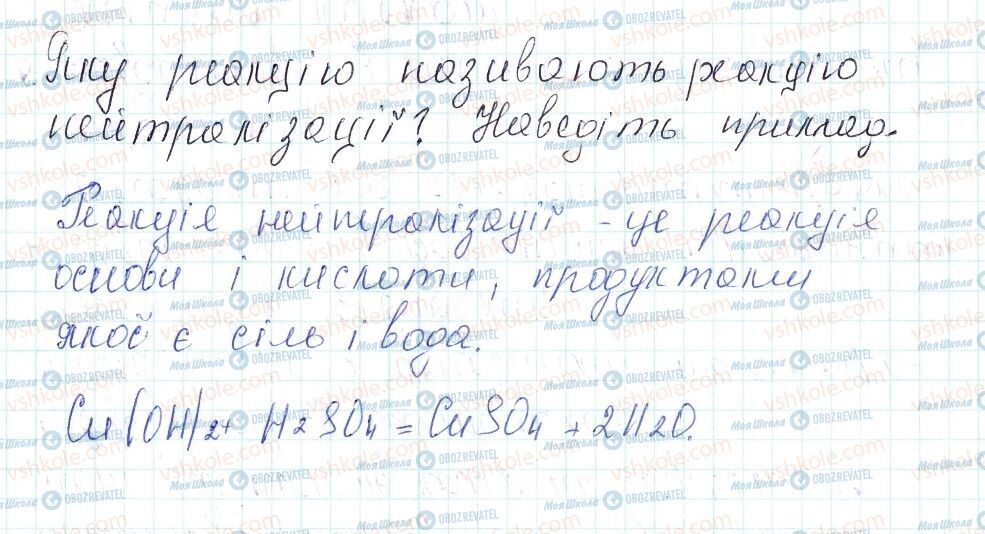 Яку реакцію називають реакцією
нейтралізації? Наведіть приклад.
Реакція нейтралізації - це реакція
основи і кислоти, продуктами
якої є сіль і вода.
Cu(OH)2 + H2SO4 = CuSO4 + 2H2O.